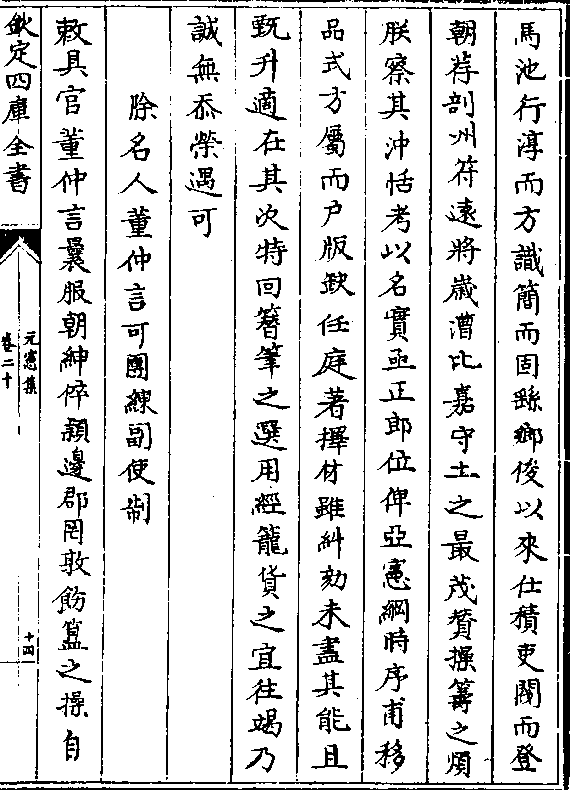 馬池行淳而方識簡而固繇鄉俊以來仕積吏閥而登
朝荐剖州符遠將歲漕比嘉守土之最茂贊操籌之煩
朕察其沖恬考以名實亟正郎位俾亞憲綱時序甫移
品式方屬而戸版缺任庭著擇材雖糾劾未盡其能且
甄升適在其次特回簪筆之選用經籠貨之宜往竭乃
誠無忝榮遇可
除名人董仲言可團練副使制
敕具官董仲言曩服朝紳倅潁邊郡罔敦飭簋之操自
欽定四庫全書
元憲集
卷二十
十四